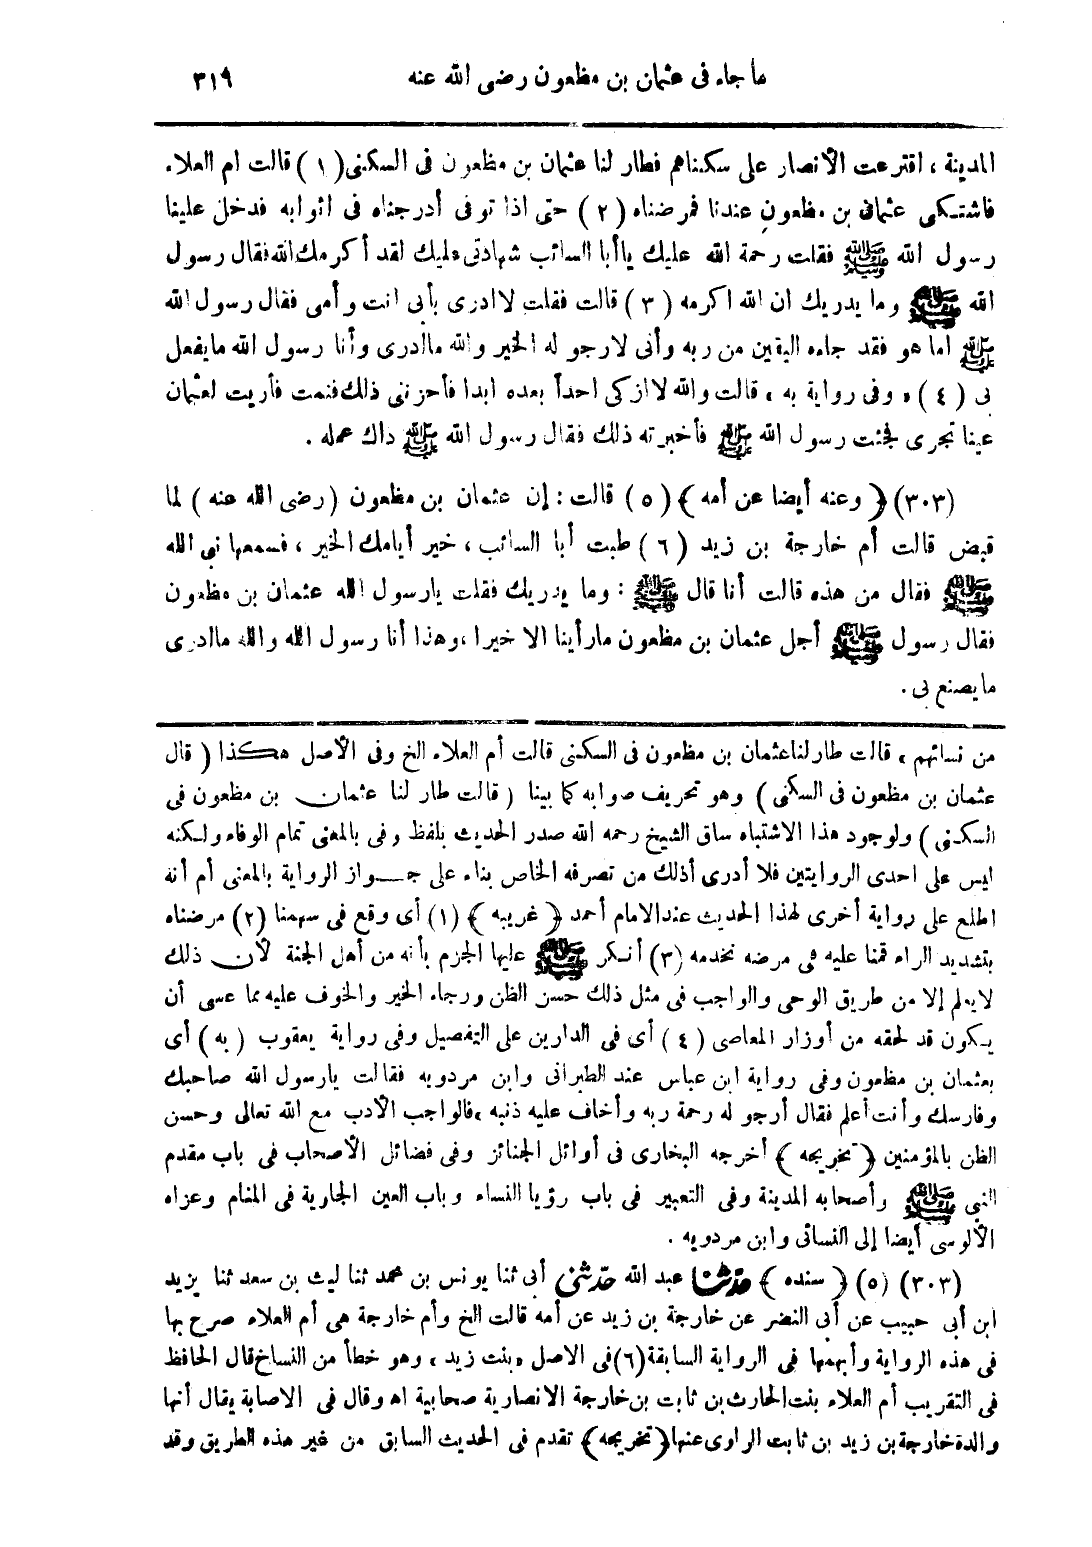 ما جاء فى عثمان بن مظعون رضى الله عنه ٣١٩
المدينة ، اقترعت الأنصار على سكناهم فطار لنا عثمان بن مظعون فى السكنى (١) قالت ام العلاء
فاشتكى عثمان بن مظعون عندنا فمرضناه (٢) حتى اذا توفى أدرجناه فى اثوابه فدخل علينا
رسول الله ﷺ فقلت رحمة الله عليك ياأبا السائب شهادتى عليك لقد أكرمك الله فقال رسول
الله ﷺ وما يدريك ان الله اكرمه (٣) قالت فقلت لاادرى بأبى انت وأمى فقال رسول الله
ﷺ اما هو فقد جاءه اليقين من ربه وأنى لارجو له الخير والله ماادرى وأنا رسول الله مايفعل
بى (٤) ، وفى رواية به ، قالت والله لاازكى احداً بعده ابدا فأحزنى ذلك فنمت فأريت لعثمان
عينا تجرى فجئت رسول الله ﷺ فأخبرته ذلك فقال رسول الله ﷺ ذاك عمله .
(٣٠٣) ﴿ وعنه أيضا عن أمه ﴾ (٥) قالت : إن عثمان بن مظعون (رضى الله عنه) لما
قبض قالت أم خارجة بن زيد (٦) طبت أبا السائب ، خير أيامك الخير ، فسمعها نبى الله
ﷺ فقال من هذه قالت أنا قال ﷺ : وما يدريك فقلت يارسول الله عثمان بن مظعون
فقال رسول ﷺ أجل عثمان بن مظعون مارأينا الا خيرا ،وهذا أنا رسول الله والله ماادرى
ما يصنع بى .
من نسائهم ، قالت طار لنا عثمان بن مظعون فى السكنى قالت أم العلاء الخ وفى الأصل هكذا ( قال
عثمان بن مظعون فى السكنى ) وهو تحريف صوابه كما بينا ( قالت طار لنا عثمان بن مظعون فى
السكنى ) ولوجود هذا الاشتباه ساق الشيخ رحمه الله صدر الحديث بلفظ وفى بالمعنى تمام الوفاء ولكنه
ليس على احدى الروايتين فلا أدرى أذلك من تصرفه الخاص بناء على جواز الرواية بالمعنى أم أنه
اطلع على رواية أخرى لهذا الحديث عند الامام أحمد ﴿ غريبه ﴾ (١) أى وقع فى سهمنا (٢) مرضناه
بتشديد الراء قمنا عليه فى مرضه نخدمه (٣) أنكر ﷺ عليها الجزم بأنه من أهل الجنة لأن ذلك
لا يعلم إلا من طريق الوحى والواجب فى مثل ذلك حسن الظن ورجاء الخير والخوف عليه مما عسى أن
يكون قد لحقه من أوزار المعاصى (٤) أى فى الدارين على التفصيل وفى رواية يعقوب ( به ) أى
بعثمان بن مظعون وفى رواية ابن عباس عند الطبرانى وابن مردويه فقالت يارسول الله صاحبك
وفارسك وأنت أعلم فقال أرجو له رحمة ربه وأخاف عليه ذنبه ،فالواجب الأدب مع الله تعالى وحسن
الظن بالمؤمنين ﴿ تخريجه ﴾ أخرجه البخارى فى أوائل الجنائز وفى فضائل الأصحاب فى باب مقدم
النبى ﷺ وأصحابه المدينة وفى التعبير فى باب رؤيا النساء وباب العين الجارية فى المنام وعزاه
الألوسى أيضا إلى النسائى وابن مردويه .
(٣٠٣) (٥) ﴿ سنده ﴾ حدثنا عبد الله حدثنى أبى ثنا يونس بن محمد ثنا ليث بن سعد ثنا يزيد
ابن أبى حبيب عن أبى النضر عن خارجة بن زيد عن أمه قالت الخ وأم خارجة هى أم العلاء صرح بها
فى هذه الرواية وأبهمها فى الرواية السابقة (٦) فى الاصل «بنت زيد» وهو خطأ من النساخ قال الحافظ
فى التقريب أم العلاء بنت الحارث بن ثابت بن خارجة الانصارية صحابية اه وقال فى الاصابة يقال أنها
والدة خارجة بن زيد بن ثابت الراوى عنها ﴿ تخريجه ﴾ تقدم فى الحديث السابق من غير هذه الطريق وقد